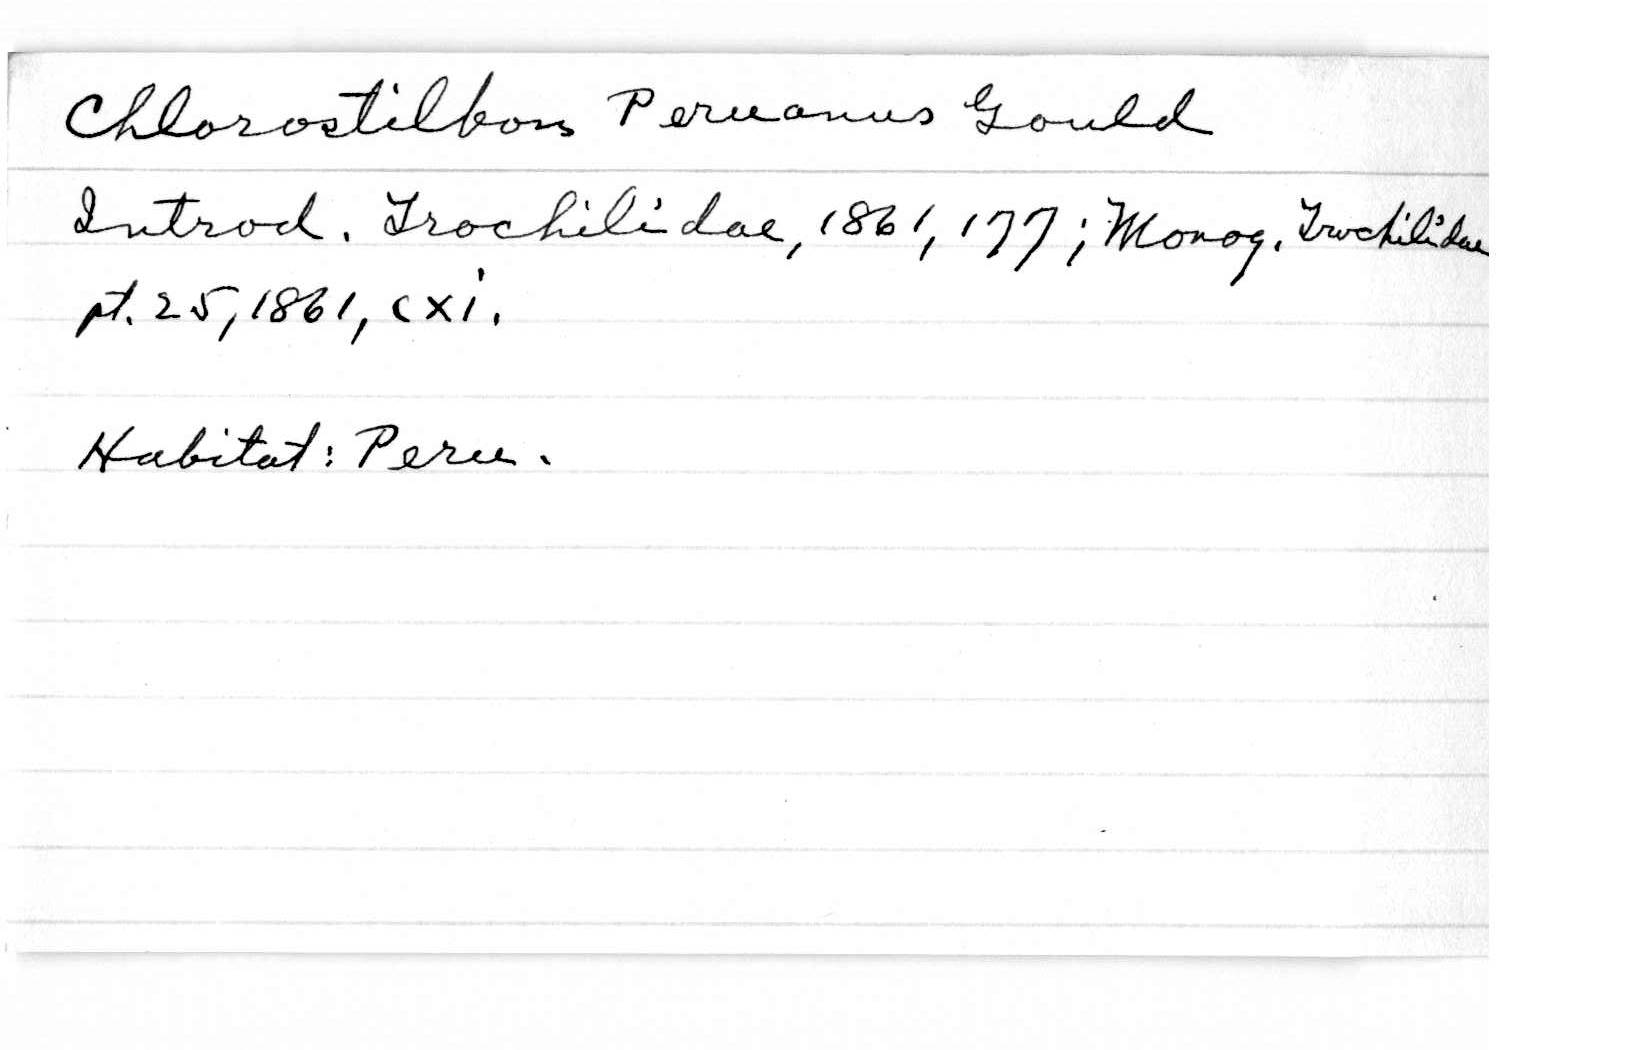 Chlorostilbon Peruanus Gould
Introd. Trochilidae, 1861, 177; Monog. Trochilidae
pt. 25, 1861, cxi.
Habitat: Peru.